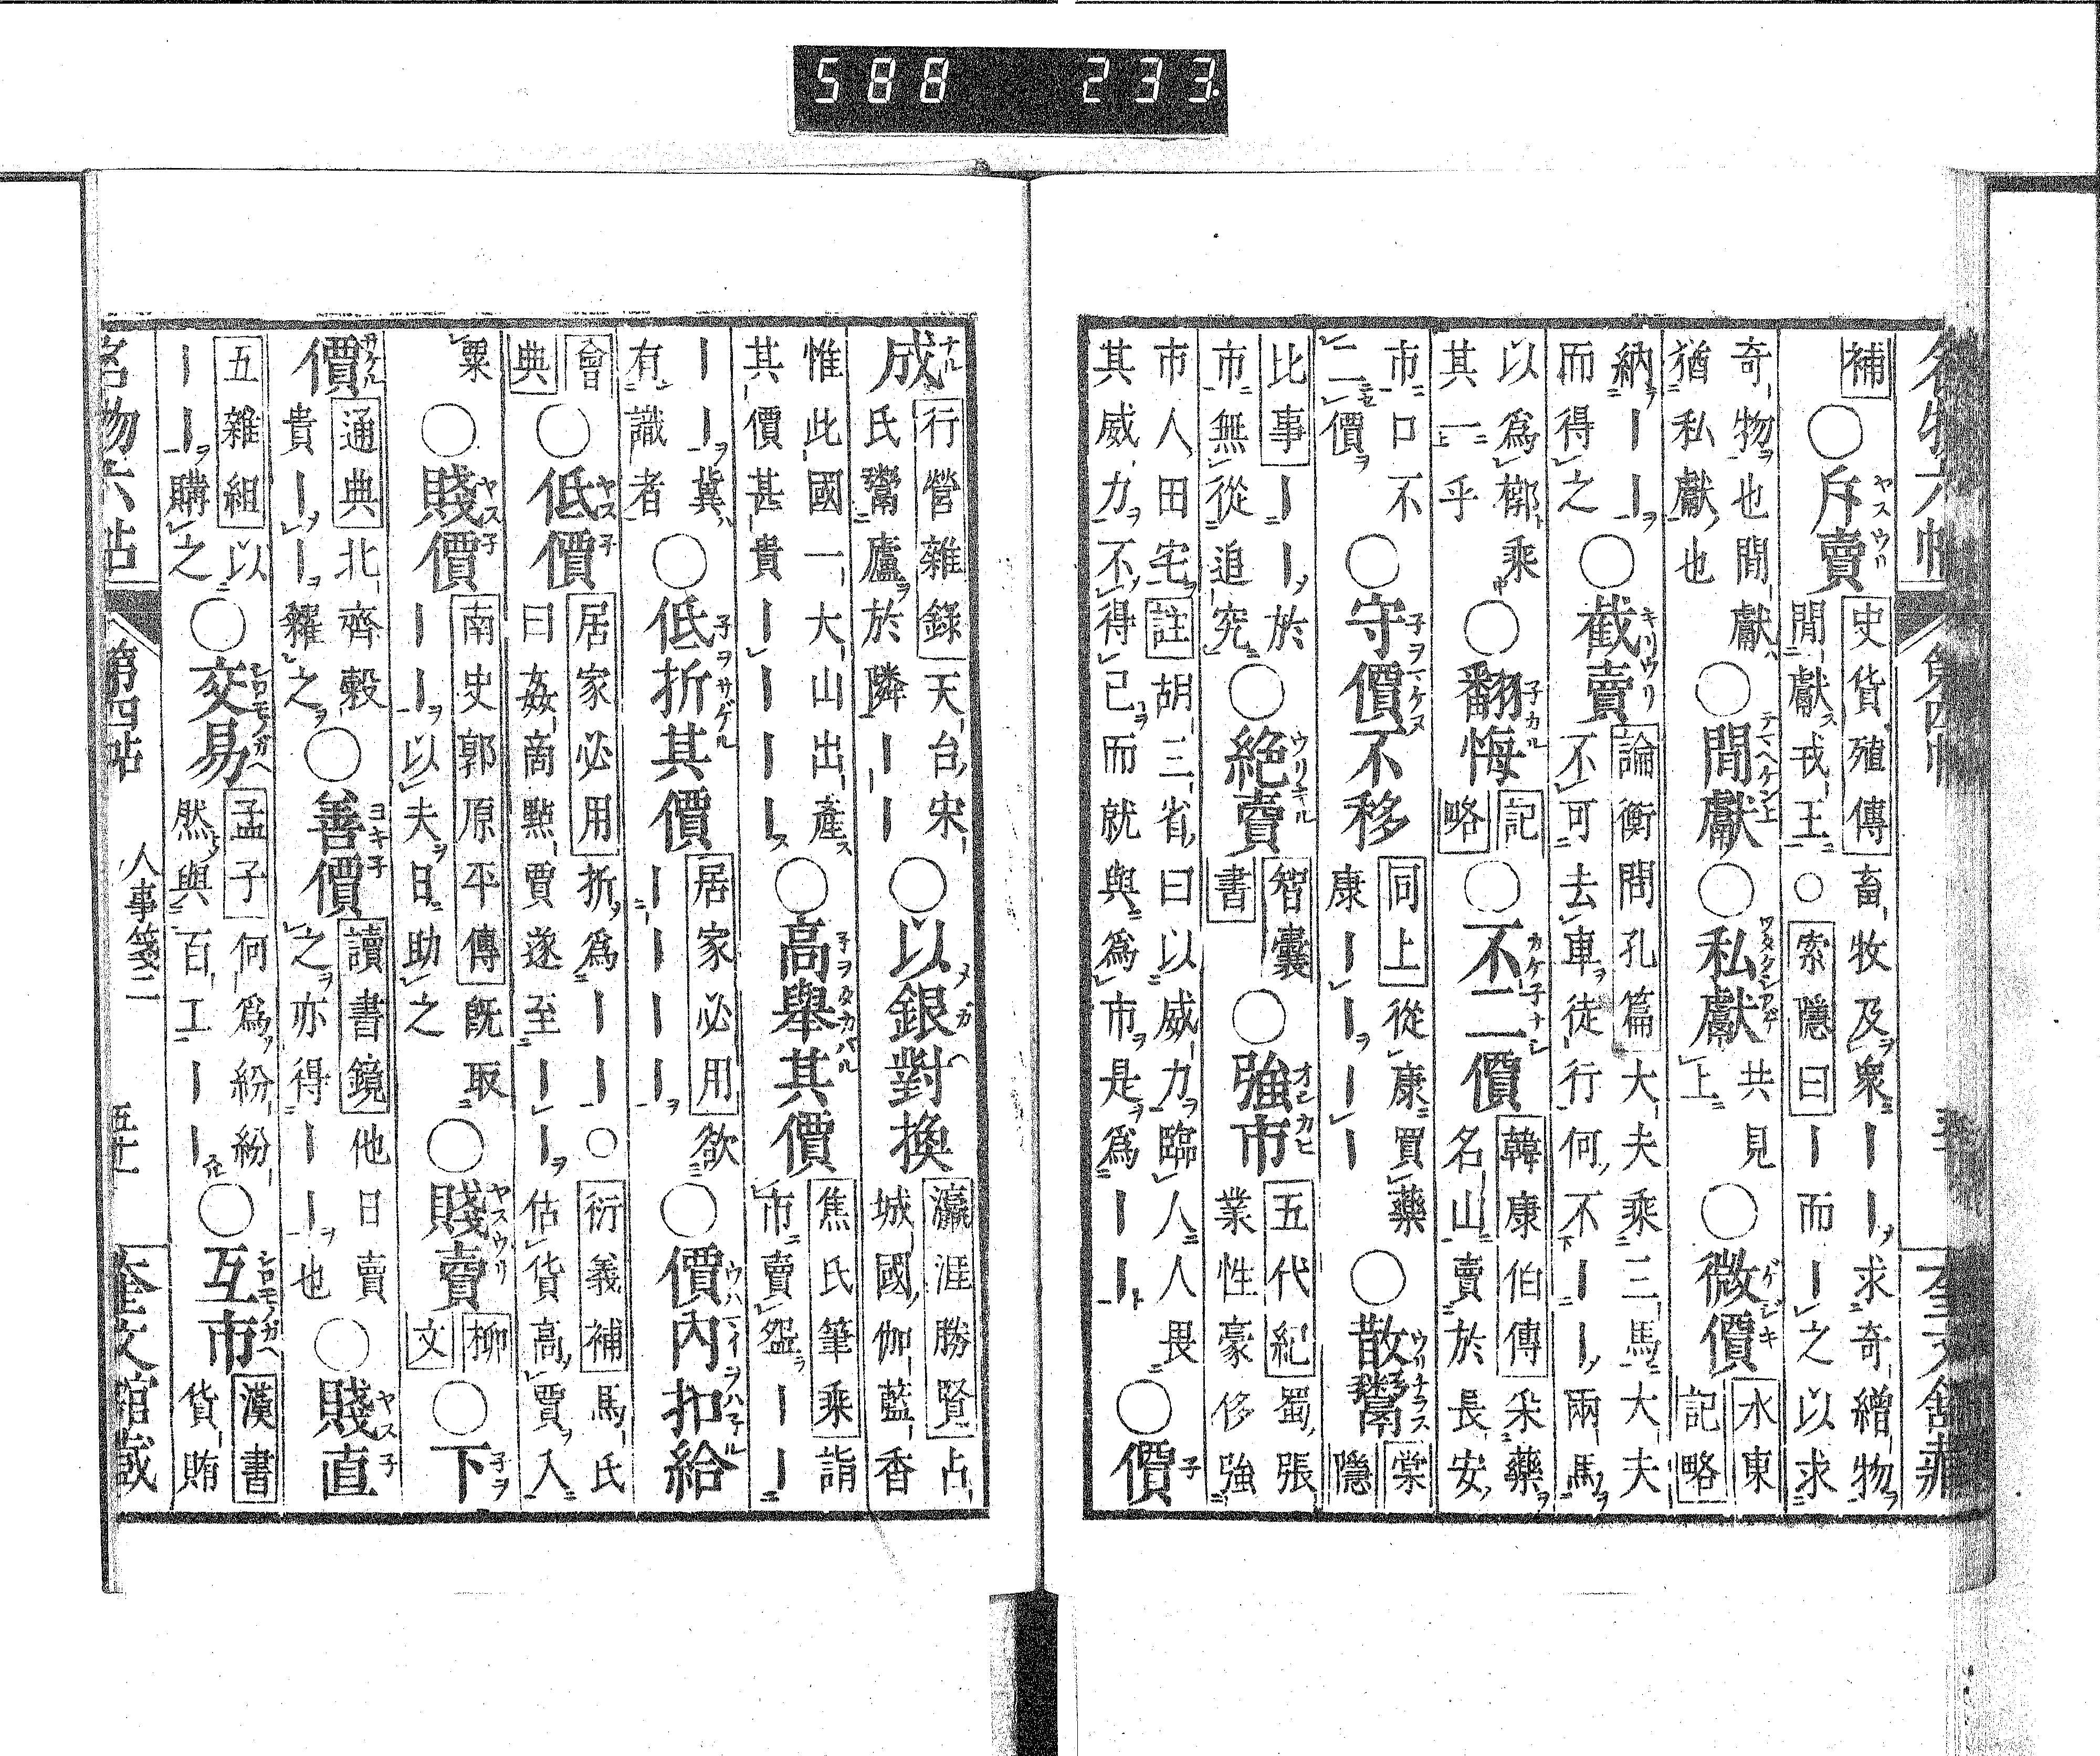 588 233
名物六帖 第四帖
補○斥賣史貨殖傳畜牧及衆||求奇繒物
間獻戎王○索隱曰|而|之以求
奇物也間獻
猶私獻也○間獻○私獻共見上○微價水東記略
納||
而得之○截賣論衡問孔篇大夫乘三馬大夫
不可去車徒行何不||兩馬
以爲槨乘
其一乎○翻悔記略○不二價韓康伯傳采藥
名山賣於長安
市口不
二價○守價不移同上從康買藥
康||||○散鬻棠隱
比事||於
市無從追究○絕賣智囊書○強市五代紀蜀張
業性豪侈強
市人田宅註胡三省曰以威力臨人人畏
其威力不得已而就與爲市是爲||○價
成行營雜錄天台宋
氏鬻廬於隣||○以銀對換瀛涯勝賢占
城國伽藍香
惟此國一大山出產
其價甚貴||||○高舉其價焦氏筆乘詣
市賣盌||
||冀
有識者○低折其價居家必用欲
||||○價內扣給
會典○低價居家必用折爲||○衍義補馬氏
曰姦商黠賈遂至||估貨高賈入
粟○賤價南史郭原平傳既取
||以夫日助之○賤賣柳文○下
價通典北齊穀
貴||糴之○善價讀書鏡他日賣
之亦得||也○賤直
五雜組以
||購之○交易孟子何爲紛紛
然與百工||○互市漢書
貨賄
名物六帖 第四帖 人事箋二 五十一 奎文館藏